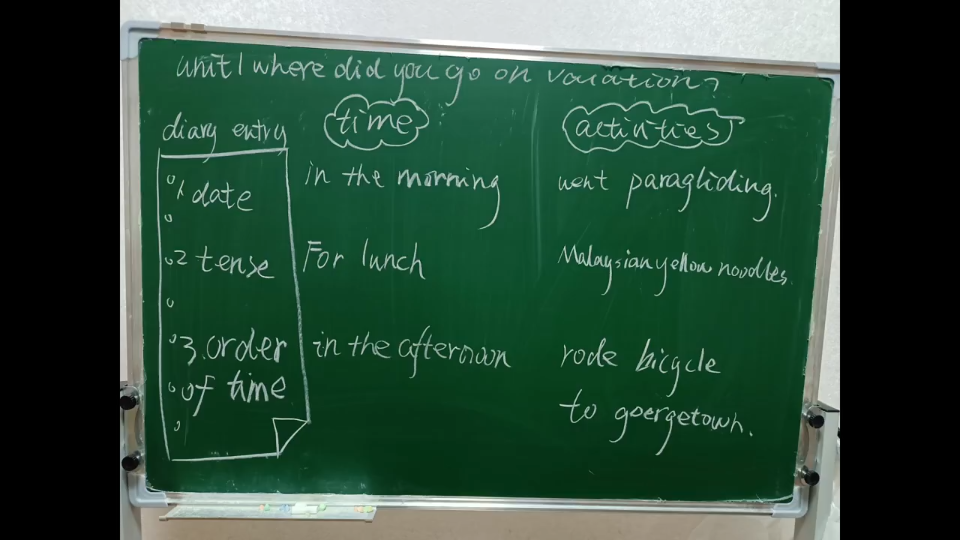 unit1 where did you go on vacation?
diary entry
time
activities
1 date
in the morning
went paragliding.
2 tense
For lunch
Malaysian yellow noodles
3. order
of time
in the afternoon
rode bicycle
to goergetown.